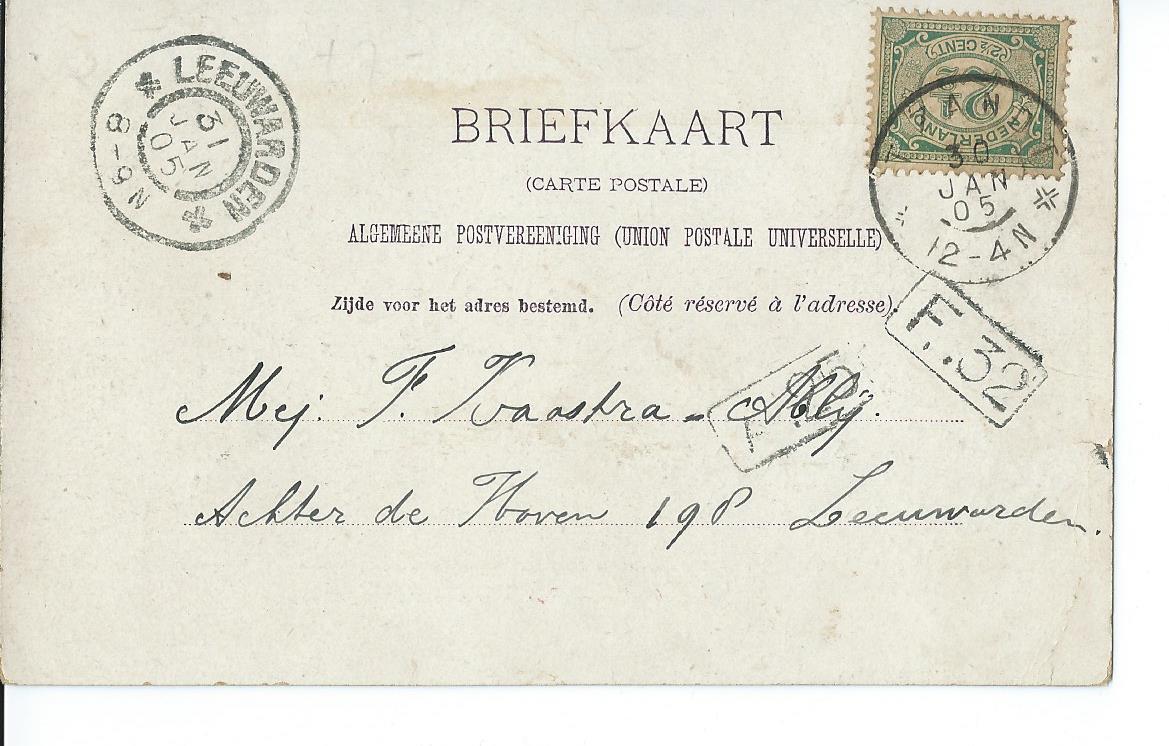 LEEUWARDEN
31
JAN
05
8-9N
2½ CENT
NEDERLAND
2½
30
JAN
05
12-4N
BRIEFKAART
(CARTE POSTALE)
ALGEMEENE POSTVEREENIGING (UNION POSTALE UNIVERSELLE)
Zijde voor het adres bestemd. (Côté réservé à l'adresse).
F. 32
Mej. F. Kaastra - Ably.
Achter de Hoven 198 Leeuwarden.